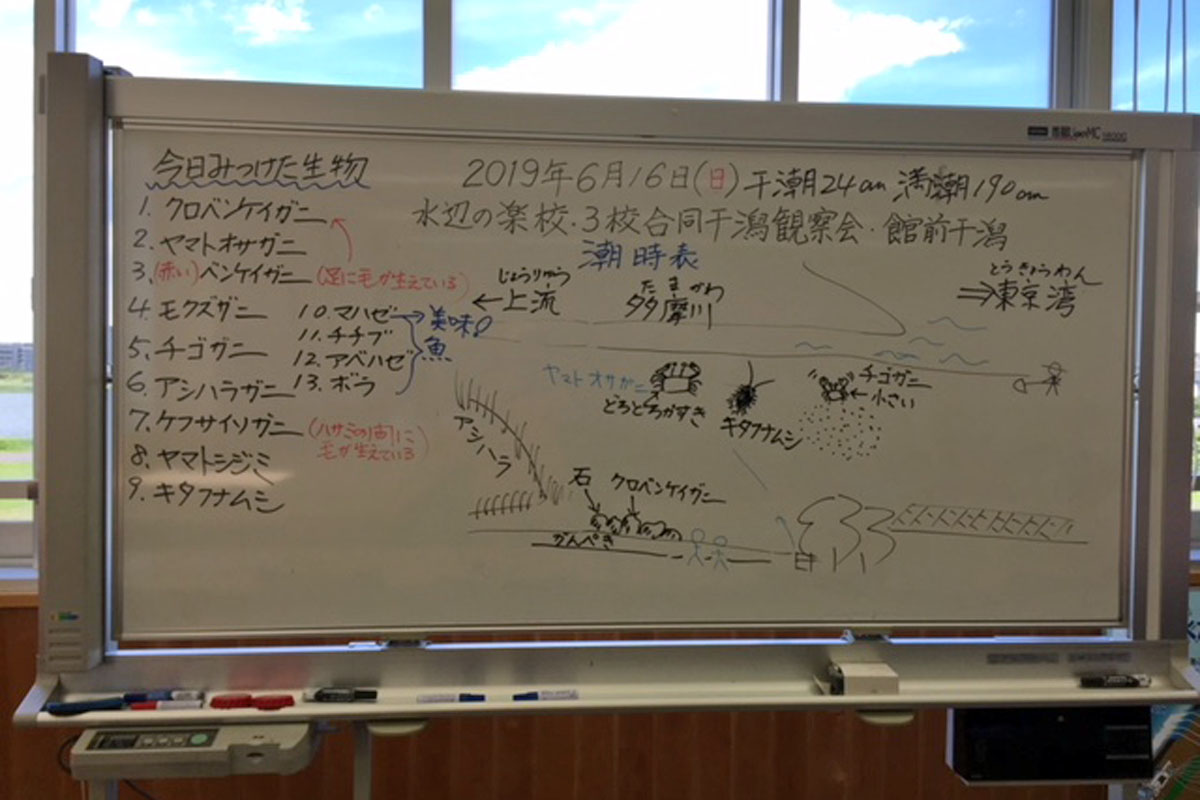 今日みつけた生物
1. クロベンケイガニ
2. ヤマトオサガニ
3. (赤い)ベンケイガニ (足に毛が生えている)
4. モクズガニ
5. チゴガニ
6. アシハラガニ
7. ケフサイソガニ (ハサミの間に
毛が生えている)
8. ヤマトシジミ
9. キタフナムシ
10. マハゼ→美味
11. チチブ
12. アベハゼ
13. ボラ
魚
2019年6月16日(日)干潮24cm 満潮190cm
水辺の楽校・3校合同干潟観察会・館前干潟
潮時表
じょうりゅう
←上流
たまがわ
多摩川
とうきょうわん
⇒東京湾
ヤマトオサガニ
どろどろがすき
キタフナムシ
チゴガニ
←小さい
アシハラ
石
クロベンケイガニ
がんぺき